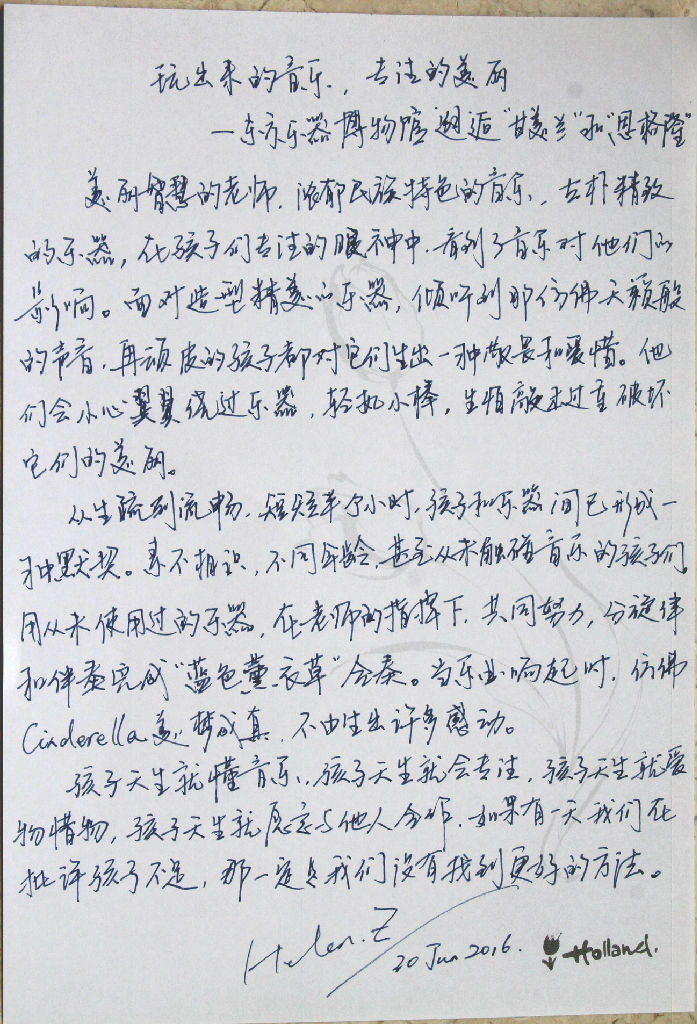 玩出来的音乐，专注的美丽
—东方乐器博物馆邂逅“甘美兰”和“恩格隆”
美丽智慧的老师，浓郁民族特色的音乐，古朴精致
的乐器，在孩子们专注的眼神中，看到了音乐对他们的
影响。面对造型精美的乐器，倾听到那仿佛天籁般
的声音，再顽皮的孩子都对它们生出一种敬畏和爱惜。他
们会小心翼翼绕过乐器，轻执小棒，生怕敲击过重破坏
它们的美丽。
从生疏到流畅，短短半个小时，孩子和乐器间已形成一
种默契。素不相识，不同年龄，甚至从未触碰音乐的孩子们，
用从未使用过的乐器，在老师的指挥下，共同努力，分旋律
和伴奏完成“蓝色薰衣草”合奏。当乐曲响起时，仿佛
Cinderella美梦成真，不由生出许多感动。
孩子天生就懂音乐，孩子天生就会专注，孩子天生就爱
物惜物，孩子天生就愿意与他人合作，如果有一天我们在
批评孩子不是，那一定是我们没有找到更好的方法。
Helen.Z
20 Jun 2016.
Holland.